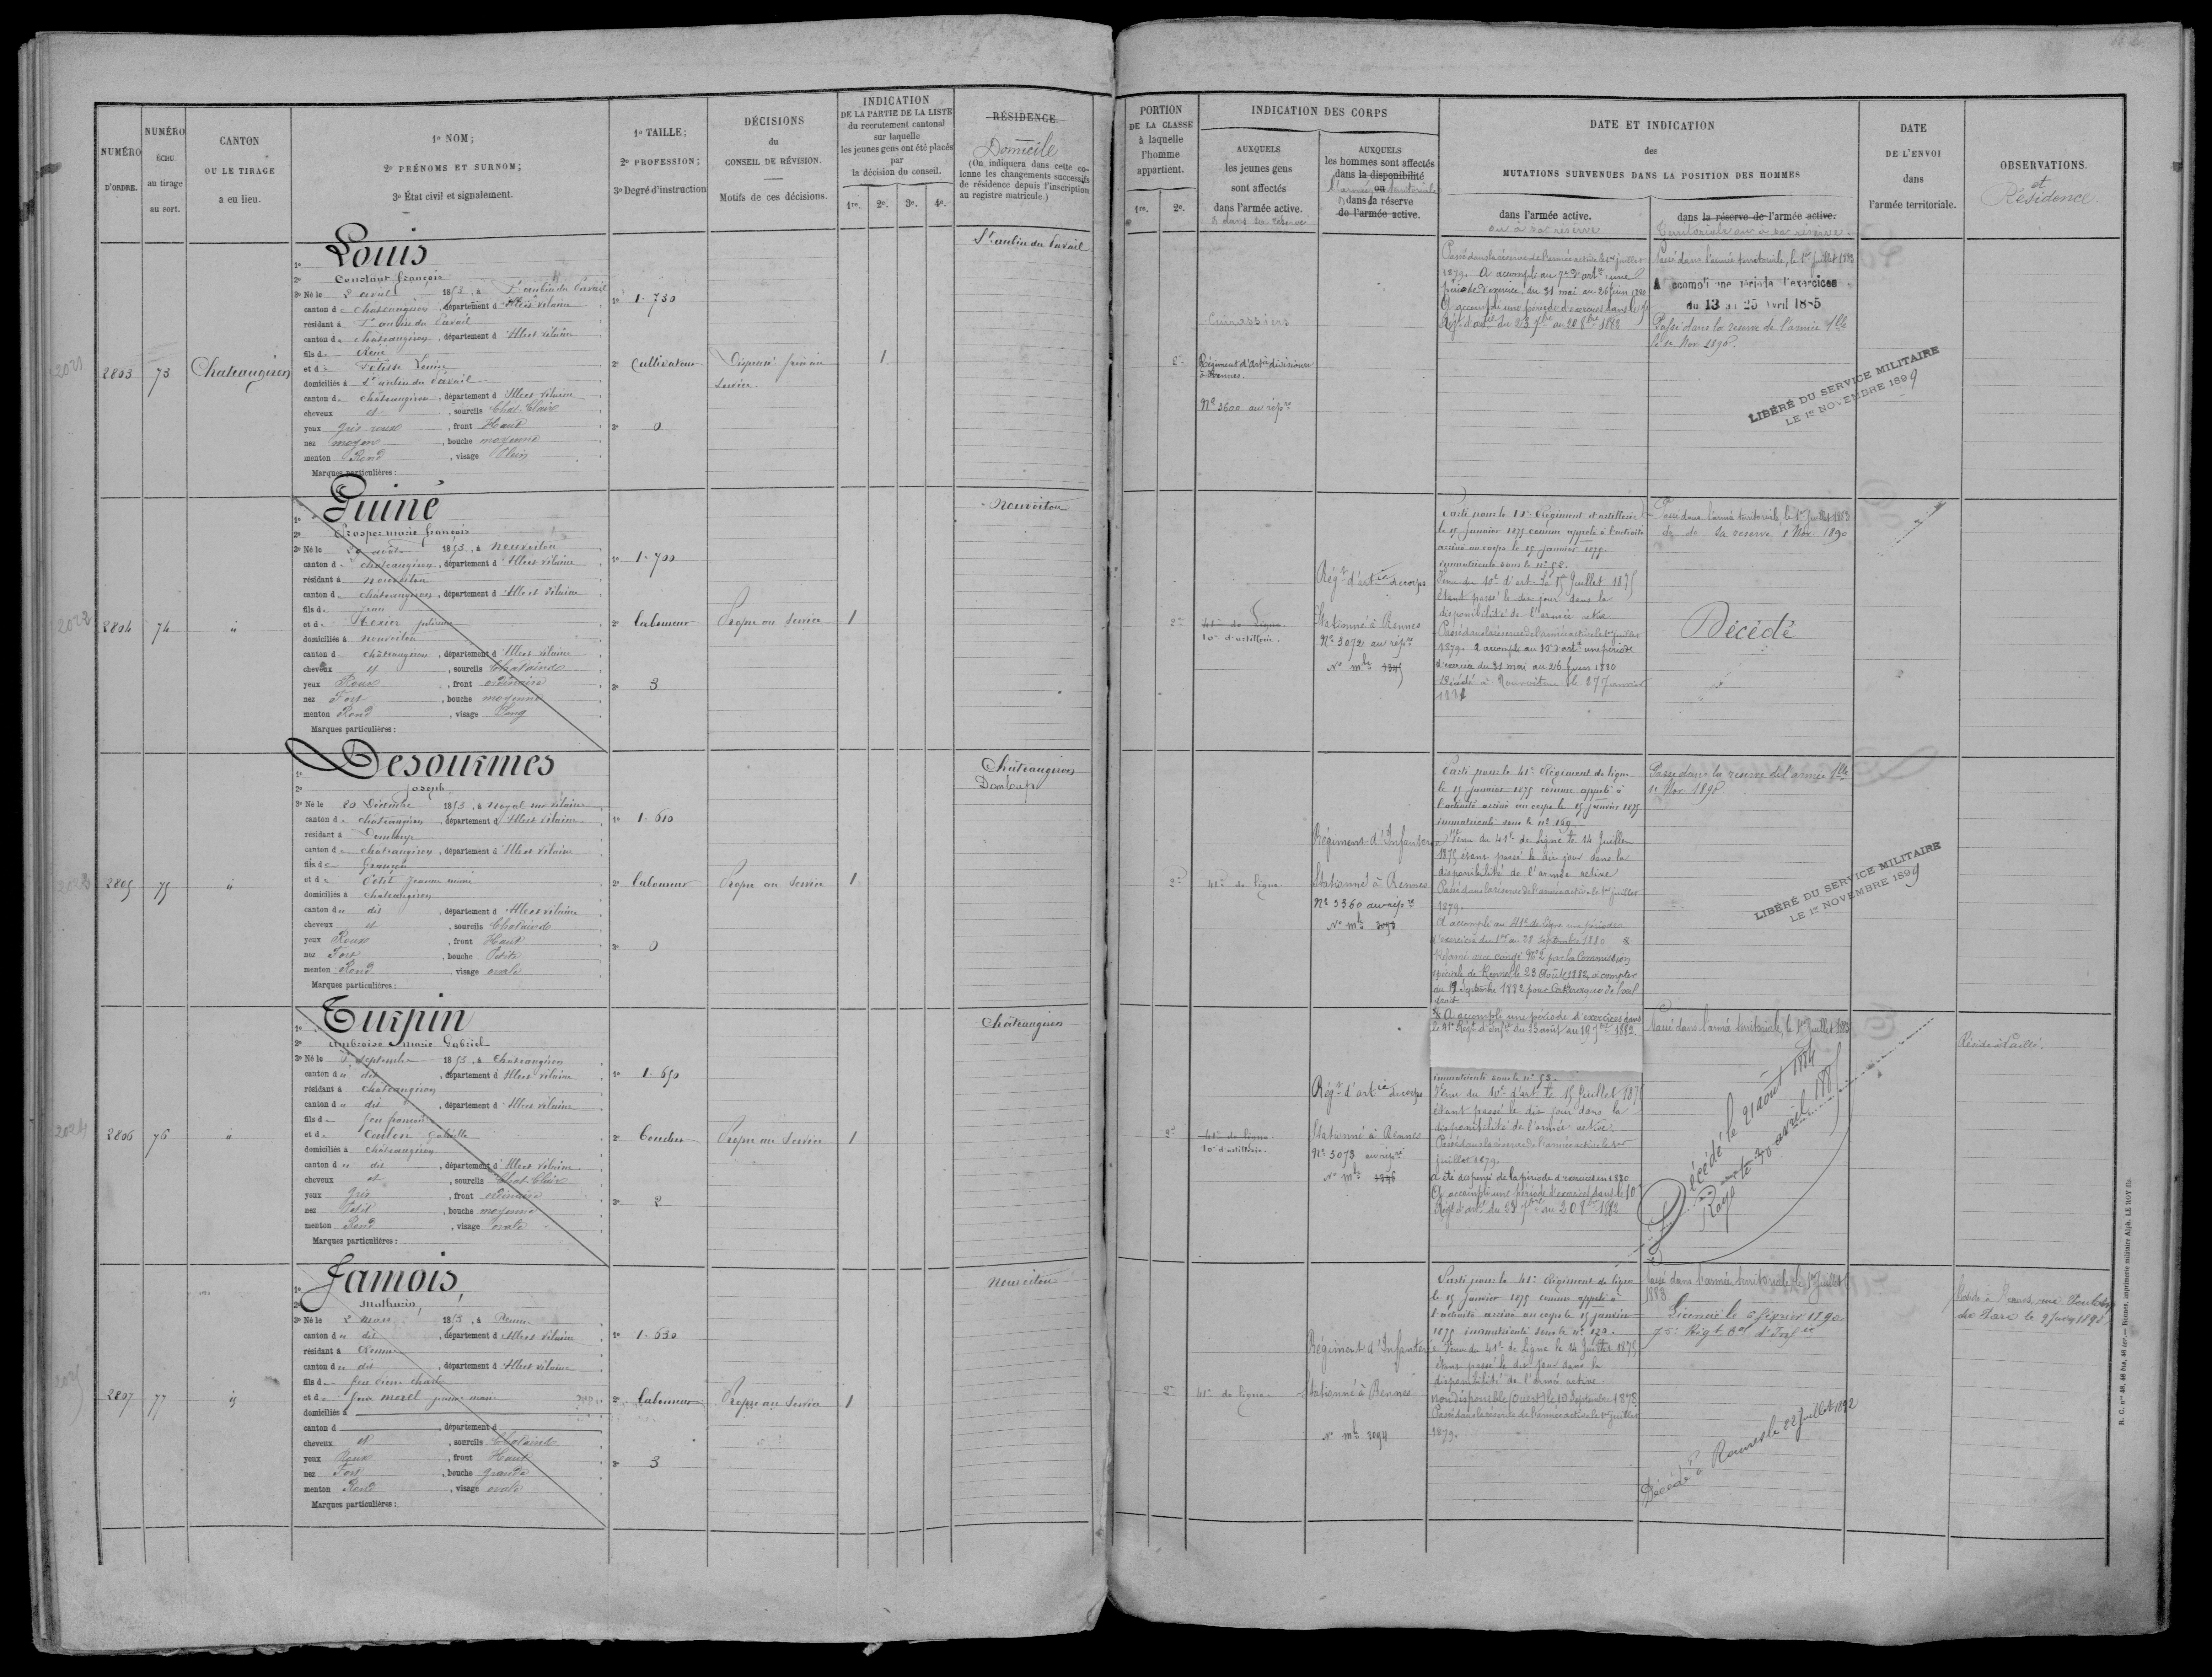 NUMÉRO D'ORDRE.
NUMÉRO ÉCHU au tirage au sort.
CANTON OU LE TIRAGE a eu lieu.
1º NOM;
2º PRÉNOMS ET SURNOM;
3º État civil et signalement.
1º TAILLE;
2º PROFESSION;
3º Degré d'instruction
DÉCISIONS du CONSEIL DE RÉVISION.
Motifs de ces décisions.
INDICATION
DE LA PARTIE DE LA LISTE
du recrutement cantonal
sur laquelle
les jeunes gens ont été placés
par
la décision du conseil.
1re. 2e. 3e. 4e.
RÉSIDENCE.
Domicile
(On indiquera dans cette colonne les changements successifs de résidence depuis l'inscription au registre matricule.)
PORTION
DE LA CLASSE
à laquelle
l'homme
appartient.
1re. 2e.
INDICATION DES CORPS
AUXQUELS
les jeunes gens
sont affectés
dans l'armée active.
& dans sa réserve
AUXQUELS
les hommes sont affectés
dans la disponibilité
ou
l'armée territoriale
dans la réserve
de l'armée active.
DATE ET INDICATION
des
MUTATIONS SURVENUES DANS LA POSITION DES HOMMES
dans l'armée active.
ou à sa réserve
dans la réserve de l'armée active.
territoriale ou à sa réserve.
DATE
DE L'ENVOI
dans
l'armée territoriale.
OBSERVATIONS.
et
Résidence.
2021
2803
73
Chateaugiron
1º Louis
2º Constant françois
3º Né le 2 avril 1853, à St aubin du Pavail
canton de châteaugiron, département d'Ille et vilaine
résidant à St aubin du Pavail
canton de châteaugiron, département d'Ille et vilaine
fils de René
et de
domiciliés à St aubin du Pavail
canton de châteaugiron, département d'Ille et vilaine
cheveux et, sourcils Chat. Clair
yeux Gris roux, front Haut
nez moyen, bouche moyenne
menton Rond, visage Plein
Marques particulières:
1º 1.730
2º Cultivateur
3º 0
1
St aubin du Pavail
2e
Cuirassiers
Régiment d'Artie divisionre
à Rennes.
Nº 3600 au rép.re
Passé dans la réserve de l'armée active le 1er juillet
1879. A accompli au 7e d'artie une
période d'exercice du 31 mai au 26 juin 1880
A accompli une période d'exercices dans le
Régt d'artie du 23 7bre au 20 8bre 1882
Passé dans l'armée territoriale, le 1er juillet 1883
A accompli une période d'exercices
du 13 au 25 avril 1885
Passé dans la réserve de l'armée tlle
le 1er Nov 1890.
LIBÉRÉ DU SERVICE MILITAIRE
LE 1er NOVEMBRE 1899
2022
2804
74
"
1º Guiné
2º Prosper marie françois
3º Né le 20 août 1853, à nouvoitou
canton de chateaugiron, département d'Ille et vilaine
résidant à nouvoitou
canton de châteaugiron, département d'Ille et vilaine
fils de jean
et de Texier julienne
domiciliés à nouvoitou
canton de châteaugiron, département d'Ille et vilaine
cheveux et, sourcils Chatains
yeux Roux, front ordinaire
nez Fort, bouche moyenne
menton Rond, visage Long
Marques particulières:
1º 1.700
2º laboureur
3º 3
Propre au Service
1
Nouvoitou
2e
41e de Ligne
10e d'artillerie.
Régt d'artie de corps
Stationné à Rennes
Nº 3072 au rép.re
Nº mle 3345
Parti pour le 10e Régiment d'artillerie
le 15 Janvier 1875 comme appelé à l'activité
arrivé au corps le 15 janvier 1875.
immatriculé sous le nº 52.
Venu du 10e d'art. le 15 Juillet 1875
étant passé le dit jour dans la
disponibilité de l'armée active
Passé dans la réserve de l'armée active le 1er juillet
1879. A accompli au 10e d'artie une période
d'exercice du 31 mai au 26 Juin 1880
Décédé à Nouvoitou le 27 Janvier
Passé dans l'armée territoriale, le 1er Juillet 1883
do do sa réserve 1 Nov 1890
Décédé
2023
2805
75
"
1º Desourmes
2º Joseph
3º Né le 20 Décembre 1853, à noyal sur vilaine
canton de châteaugiron, département d'Ille et vilaine
résidant à Domloup
canton de chateaugiron, département d'Ille et vilaine
fils de françois
et de Petit Jeanne marie
domiciliés à châteaugiron
canton du dit, département d'Ille et vilaine
cheveux et, sourcils Chatains
yeux Roux, front Haut
nez Fort, bouche Petite
menton Rond, visage ovale
Marques particulières:
1º 1.610
2º laboureur
3º 0
Propre au Service
1
Châteaugiron
Domloup
2e
41e de ligne
Régiment d'Infanterie
Stationné à Rennes
Nº 3360 au rép.re
Nº mle 3093
Parti pour le 41e Régiment de ligne
le 15 Janvier 1875 comme appelé à
l'activité arrivé au corps le 15 janvier 1875
immatriculé sous le nº 169.
Venu du 41e de Ligne le 14 Juillet
1875 étant passé le dit jour dans la
disponibilité de l'armée active
Passé dans la réserve de l'armée active le 1er juillet
1879.
A accompli au 41e de Ligne une période
d'exercice du 1er au 28 Septembre 1880
Réformé avec congé Nº 2 par la Commission
spéciale de Rennes le 23 Août 1882, à compter
du 19 Septembre 1882 pour Cataracte de l'œil
droit
A accompli une période d'exercices dans
le 41e Régt d'Infie du 23 août au 19 7bre 1882.
Passé dans la réserve de l'armée tlle
1er Nov 1890
LIBÉRÉ DU SERVICE MILITAIRE
LE 1er NOVEMBRE 1899
2024
2806
76
"
1º Turpin
2º Ambroise marie Gabriel
3º Né le septembre 1853, à Chateaugiron
canton du dit, département d'Ille et vilaine
résidant à chateaugiron
canton du dit, département d'Ille et vilaine
fils de feu françois
et de Gabrielle
domiciliés à châteaugiron
canton du dit, département d'Ille et vilaine
cheveux et, sourcils Chat. Clair
yeux Gris, front ordinaire
nez Petit, bouche moyenne
menton Rond, visage ovale
Marques particulières:
1º 1.650
2º Boucher
3º 2
Propre au Service
1
Châteaugiron
2e
41e de ligne
10e d'artillerie.
Régt d'artie de corps
Stationné à Rennes
Nº 3073 au rép.re
Nº mle 3346
immatriculé sous le nº 53.
Venu du 10e d'artie le 15 Juillet 1875
étant passé le dit jour dans la
disponibilité de l'armée active.
Passé dans la réserve de l'armée active le 1er
Juillet 1879.
A été dispensé de la période d'exercices en 1880
A accompli une période d'exercices dans le 10e
Régt d'artie du 23 7bre au 20 8bre 1882
Passé dans l'armée territoriale, le 1er Juillet 1883
Décédé le 21 août 1884
Rayé le 30 avril 1885
Réside à
2025
2807
77
"
1º Jamois,
2º Mathurin,
3º Né le 2 mars 1853, à Rennes
canton du dit, département d'Ille et vilaine
résidant à Rennes
canton du dit, département d'Ille et vilaine
fils de feu
et de feue morel jeanne marie
domiciliés à
canton d, département d
cheveux et, sourcils Chatains
yeux Roux, front Haut
nez Fort, bouche grande
menton Rond, visage ovale
Marques particulières:
1º 1.630
2º laboureur
3º 3
Propre au Service
1
Nouvoitou
2e
41e de ligne
Régiment d'Infanterie
Stationné à Rennes
Nº mle 3094
Parti pour le 41e Régiment de ligne
le 15 Janvier 1875 comme appelé à
l'activité arrivé au corps le 15 janvier
1875 immatriculé sous le nº 173.
Venu du 41e de Ligne le 14 Juillet 1875
étant passé le dit jour dans la
disponibilité de l'armée active.
non disponible (Ouest) le 10 Septembre 1878.
Passé dans la réserve de l'armée active le 1er juillet
1879.
Passé dans l'armée territoriale le 1er Juillet
1883
Licencié le 6 février 1890
75e Régt tal d'Infie
Décédé à Rennes le 22 Juillet 1892
H. C. nos 46, 46 bis, 46 ter.— Rennes, imprimerie militaire Alph. LE ROY fils.